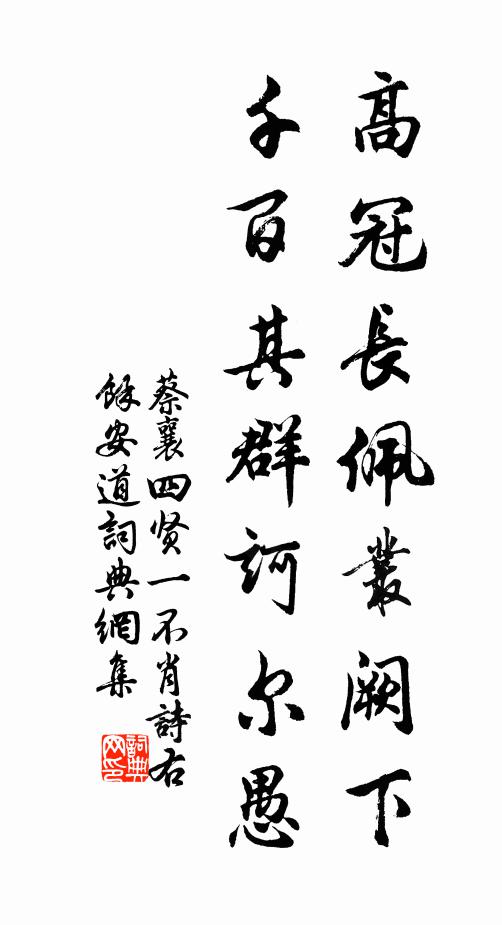 高冠長佩叢闕下
千百其群訶尔愚
蔡襄四贤一不肖詩右
餘安道詞典網集
詞典
网印